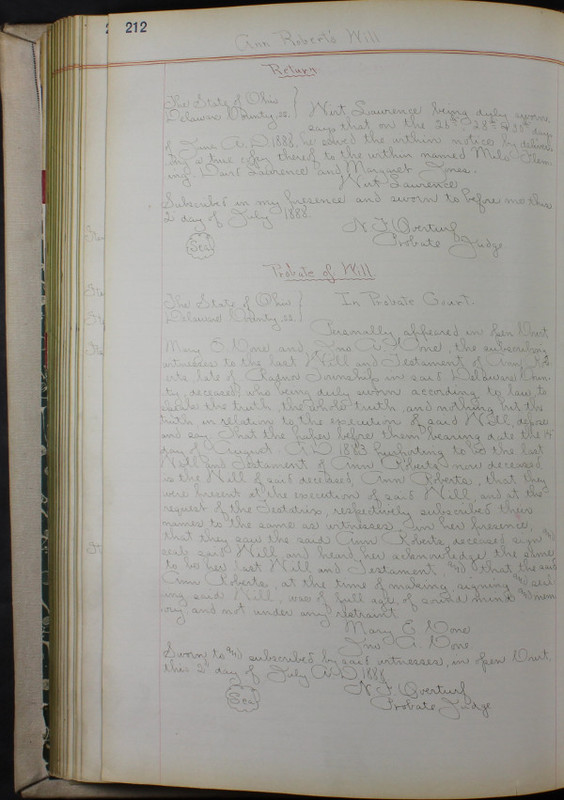 212
Ann Robert's Will
Return
The State of Ohio
Delaware County, ss.
Wirt Lawrence being duly sworn
says that on the 26th, 28th & 30th days
of June A.D. 1888, he served the within notice by deliver-
ing a true copy thereof to the within named Milo Flem-
ing, Lawrence and Margaret Jones.
Wirt Lawrence
Subscribed in my presence and sworn to before me this
2d day of July 1888.
N. F. Overturf
Probate Judge
Seal
Probate of Will
The State of Ohio
Delaware County, ss.
In Probate Court.
Personally appeared in open Court
Mary E. Cone and Jno. A. Cone, the subscribing
witnesses to the last Will and Testament of Ann Rob-
erts, late of Radnor Township in said Delaware Coun-
ty, deceased, who being duly sworn according to law to
speak the truth, the whole truth, and nothing but the
truth, in relation to the execution of said Will, depose
and say: That the paper before them bearing date the 14"
day of August A.D. 1883 purporting to be the last
Will and Testament of Ann Roberts now deceased
is the Will of said deceased, Ann Roberts, that they
were present at the execution of said Will, and at the
request of the Testatrix, respectively subscribed their
names to the same as witnesses in her presence,
that they saw the said Ann Roberts deceased sign &
seal said Will and heard her acknowledge the same
to be her last Will and Testament, & that the said
Ann Roberts, at the time of making, signing & seal-
ing said Will, was of full age, of sound mind & mem
ory and not under any restraint.
Mary E. Cone
Jno. A. Cone
Sworn to & subscribed by said witnesses, in open Court
the 2d day of July A.D. 1888
N. F. Overturf
Probate Judge
Seal